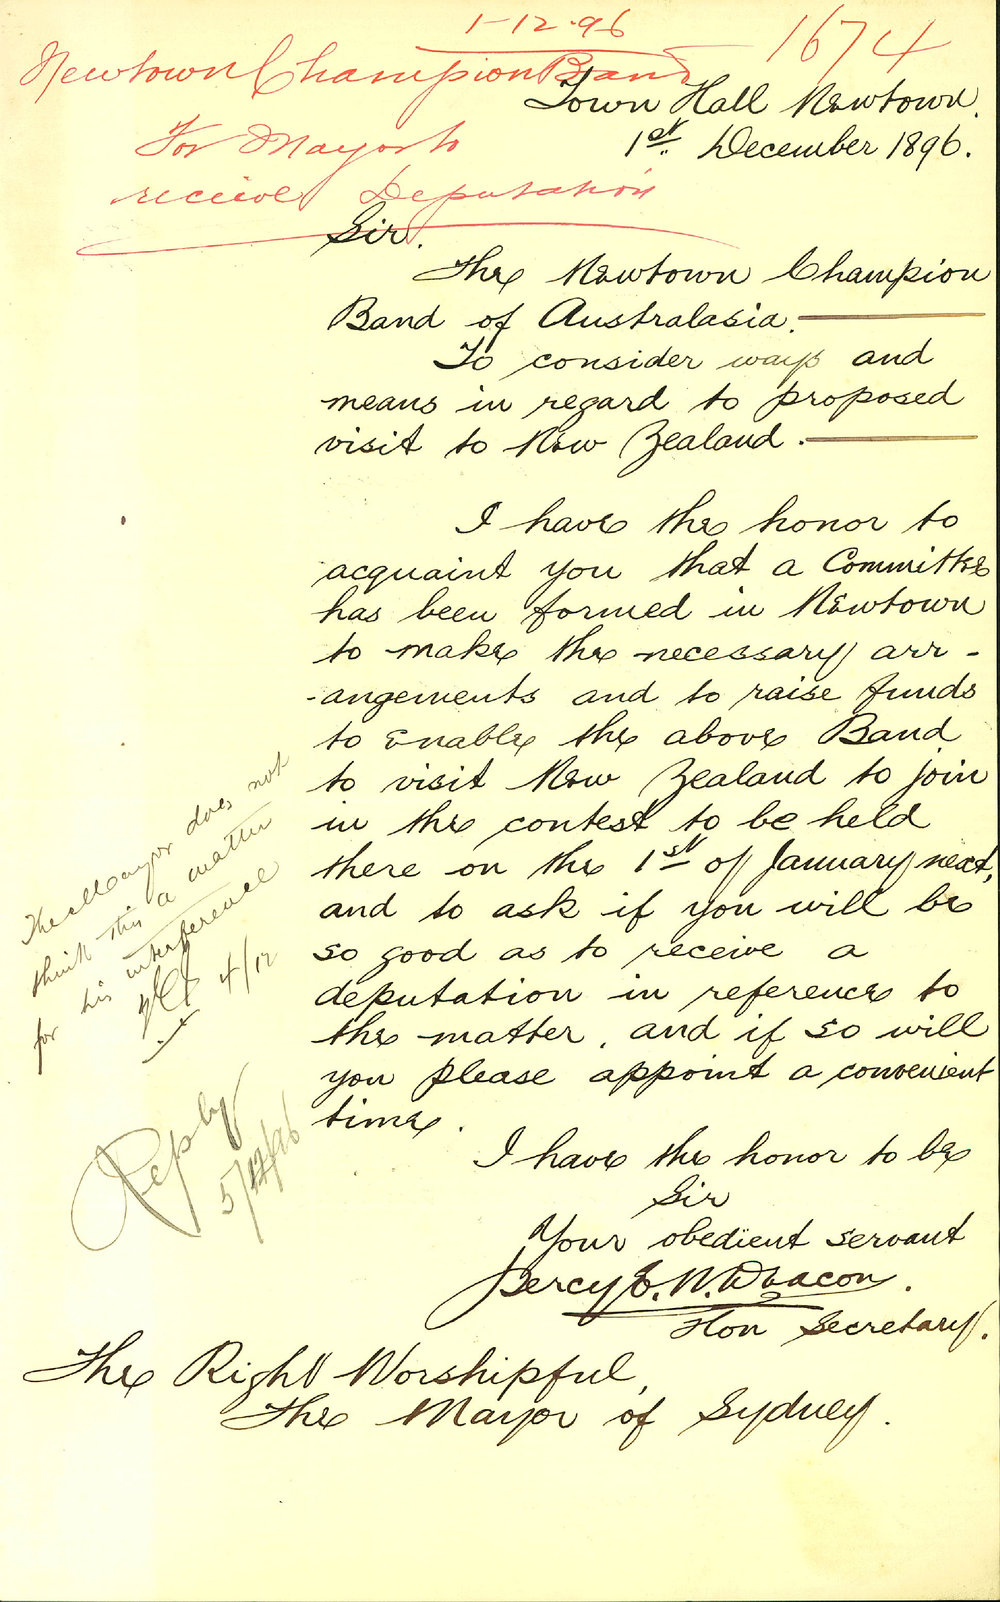 1-12-96
1674
Newtown Champion Band
For Mayor to
receive Deputation
Town Hall Newtown.
1st. December 1896.
Sir.
The Newtown Champion
Band of Australasia.
To consider ways and
means in regard to proposed
visit to New Zealand.
I have the honor to
acquaint you that a Committee
has been formed in Newtown
to make the necessary arr-
-angements and to raise funds
to enable the above Band
to visit New Zealand to join
in the contest to be held
there on the 1st of January next,
and to ask if you will be
so good as to receive a
deputation in reference to
the matter, and if so will
you please appoint a convenient
time.
I have the honor to be
Sir
Your obedient servant
Percy E. N. Deacon.
Hon Secretary.
The Right Worshipful,
The Mayor of Sydney.
The Mayor does not
think this a matter
for his interference
4/12
Reply
5/12/96